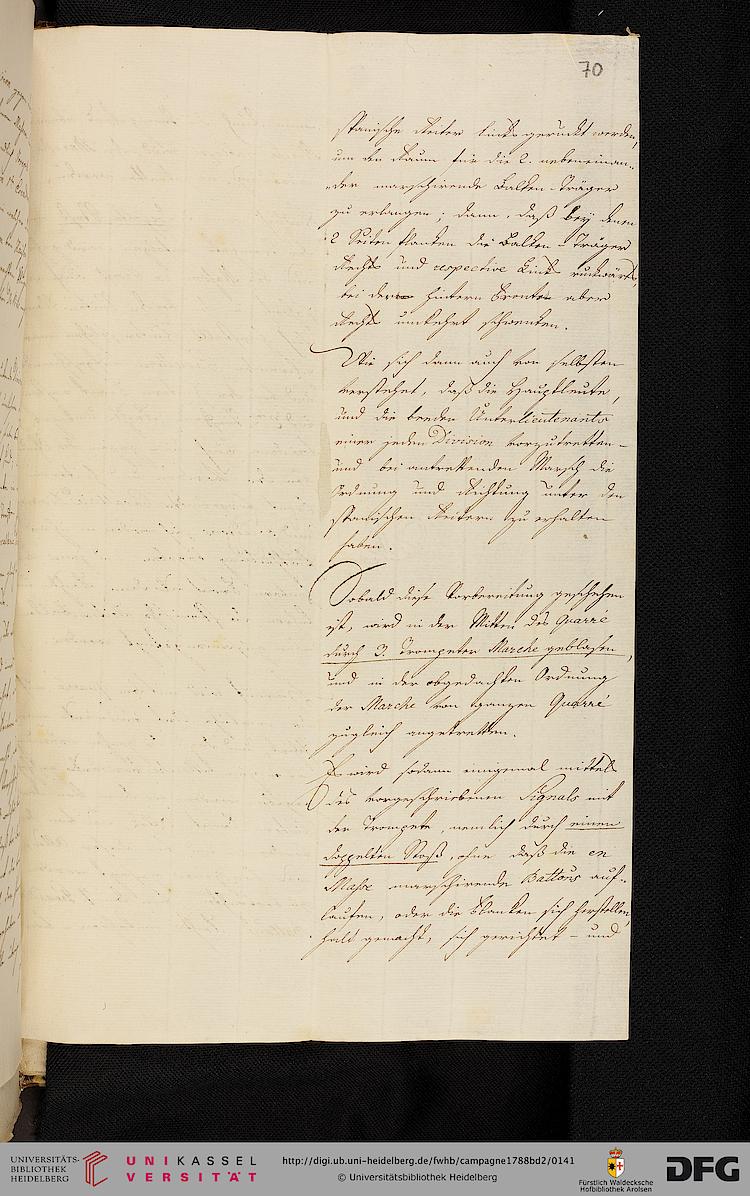 70
spanische Reiter links gerückt werden,
um den Raum für die 2. nebeneinan-
der marschirende Balken-Träger
zu erlangen; dann, daß bey denen
2 Seiten Flanken die Balken-Träger
Rechts und respective Links ruckwärts,
bei der hintern Fronte aber
Rechts umkehrt schwenken.
Wie sich dann auch von selbsten
verstehet, daß die Hauptleute,
und die beeden Unterlieutenants
einer jeden Division vorzutretten
und bei antrettenden Marsch die
Ordnung und Richtung unter den
spanischen Reitern zu erhalten
haben.
Sobald diese Vorbereitung geschehen
ist, wird in der Mitten des Quarré
durch 3. Trompeter Marche geblasen,
und in der obgedachten Ordnung
der Marche von ganzen Quarré
zugleich angetretten.
Es wird sodann einigemal mittels
des vorgeschriebenen Signals mit
der Trompete, nemlich durch einen
doppelten Stoß, ohne daß die en
Masse marschirende Battons auf-
laufen, oder die Flanken sich herstellen,
halt gemacht, sich gerichtet - und
UNIVERSITÄTS-
BIBLIOTHEK
HEIDELBERG
UNIKASSEL
VERSITÄT
http://digi.ub.uni-heidelberg.de/fwhb/campagne1788bd2/0141
© Universitätsbibliothek Heidelberg
Fürstlich Waldecksche
Hofbibliothek Arolsen
DFG